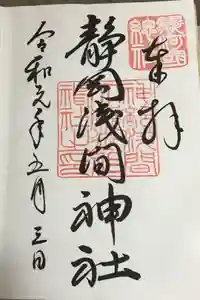 奉拝
静岡浅間神社
令和元年五月三日